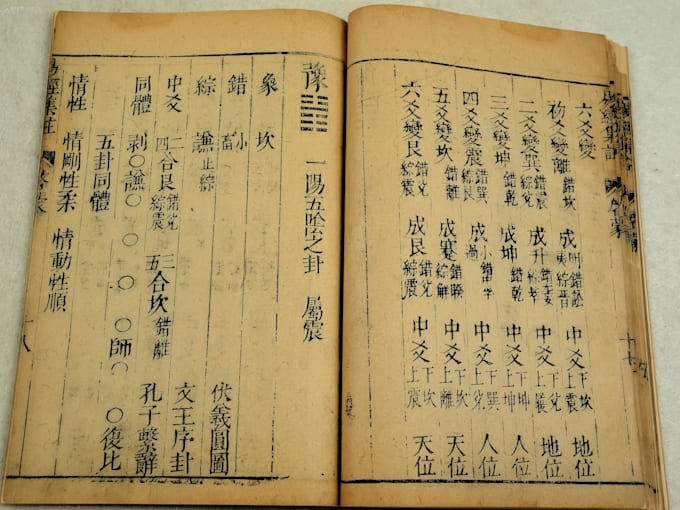 六爻變
初爻變離錯坎 成明夷錯訟綜晉 中爻下坎上震 地位
二爻變巽錯震綜兌 成升錯无妄綜萃 中爻下兌上震 地位
三爻變坤錯乾 成坤錯乾 中爻下坤上坤 人位
四爻變震錯巽綜艮 成小過錯中孚 中爻下巽上兌 人位
五爻變坎錯離 成蹇錯睽綜解 中爻下坎上離 天位
六爻變艮錯兌綜震 成艮錯兌綜震 中爻下坎上震 天位
易經集註
十七
豫 一陽五陰之卦 屬震
象 坎
錯 小畜 伏羲圓圖
綜 謙正綜 文王序卦
中爻 二四合艮錯兌綜震 三五合坎錯離 孔子繫辭
同體 剥○謙○○○○師○○復比
五卦同體
情性 情剛性柔 情動性順
易經集註
十八